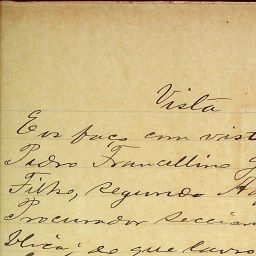 Vista
E os faço com vist
Pedro Francellino G
Filho, segundo A
Procurador Seccion
blica; do que lavro